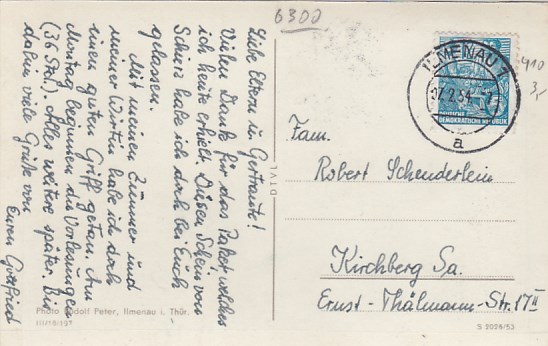 6300
Liebe Eltern u. Gertraute!
Vielen Dank für das Paket, welches
ich heute erhielt. Diesen Schein von
Schirs habe ich doch bei Euch
gelassen.
Mit meinem Zimmer und
meiner Wirtin habe ich doch
einen guten Griff getan. Am
Montag beginnen die Vorlesungen
(36 Std.). Alles weitere später. Bis
dahin viele Grüße von
Euren Gottfried
Photo Rudolf Peter, Ilmenau i. Thür.
III/18/197
ILMENAU 1
27.2.54
a
DEUTSCHE
DEMOKRATISCHE REPUBLIK
910
3,-
Fam.
Robert Schenderlein
Kirchberg Sa.
Ernst-Thälmann-Str. 17 II
S 2056/53